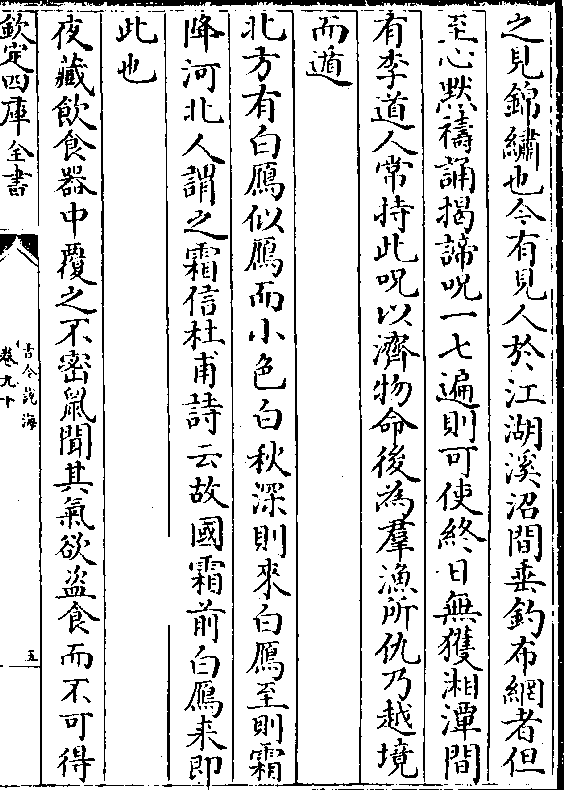 之見錦繡也今有見人於江湖溪沼間垂釣布網者但
至心黙禱誦揭諦呪一七遍則可使終日無獲湘潭間
有李道人常持此呪以濟物命後為羣漁所仇乃越境
而遁
北方有白鴈似鴈而小色白秋深則來白鴈至則霜
降河北人謂之霜信杜甫詩云故國霜前白鴈来即
此也
夜藏飲食器中覆之不密鼠聞其氣欲盜食而不可得
欽定四庫全書
古今說海
卷九十
五